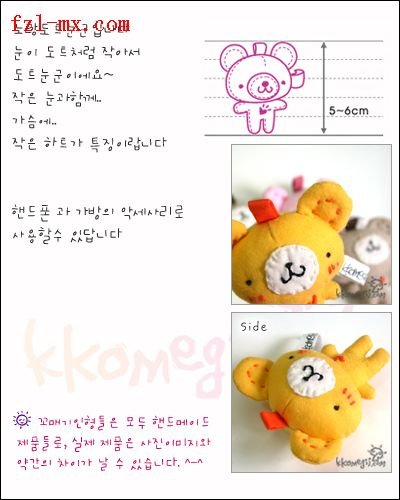 fzl-mx.com
눈이 도트처럼 작아서
도트눈곰이에요~
작은 눈과함께..
가슴에..
작은 하트가 특징이랍니다
5~6cm
핸드폰 과 가방의 악세사리로
사용할수 있답니다
kkomegi.com
Side
kkomegi
꼬매기인형들은 모두 핸드메이드
제품들로, 실제 제품은 사진이미지와
약간의 차이가 날 수 있습니다. ^-^
kkomegi.com